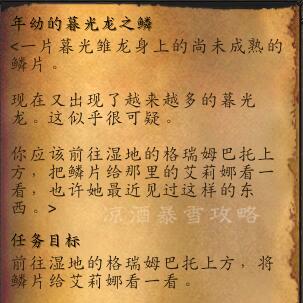 年幼的暮光龙之鳞
<一片暮光雏龙身上的尚未成熟的
鳞片。
现在又出现了越来越多的暮光
龙。这似乎很可疑。
你应该前往湿地的格瑞姆巴托上
方，把鳞片给那里的艾莉娜看一
看，也许她最近见过这样的东
西。>
凉酒暴雪攻略
任务目标
前往湿地的格瑞姆巴托上方，将
鳞片给艾莉娜看一看。